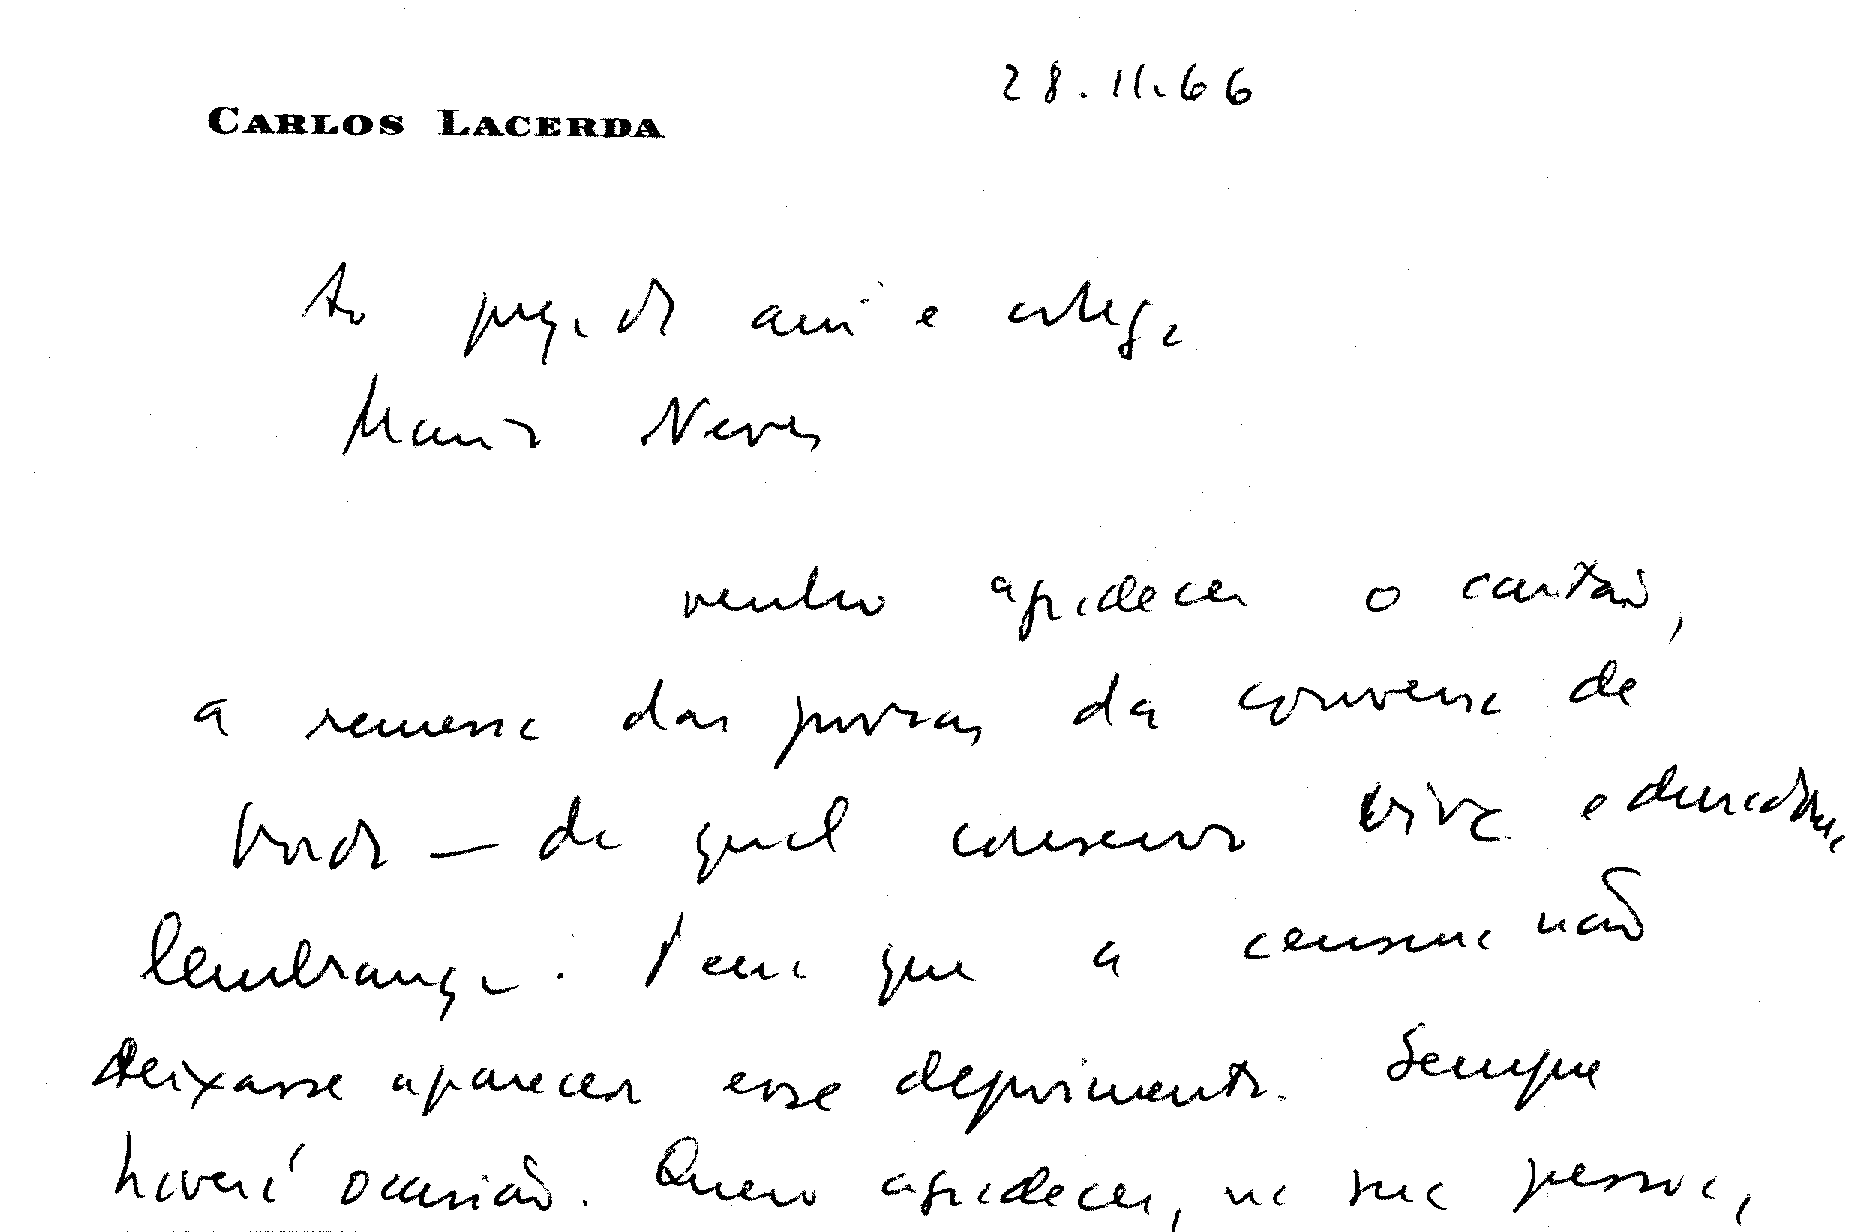 CARLOS LACERDA
28.11.66
Ao prezado am° e colega
Mauro Neves
venho agradecer o cartão,
a remessa das provas da conversa de
bordo — da qual conservo viva e duradoura
lembrança. Pena que a censura não
deixasse aparecer esse depoimento. Sempre
haverá ocasião. Quero agradecer, na sua pessoa,